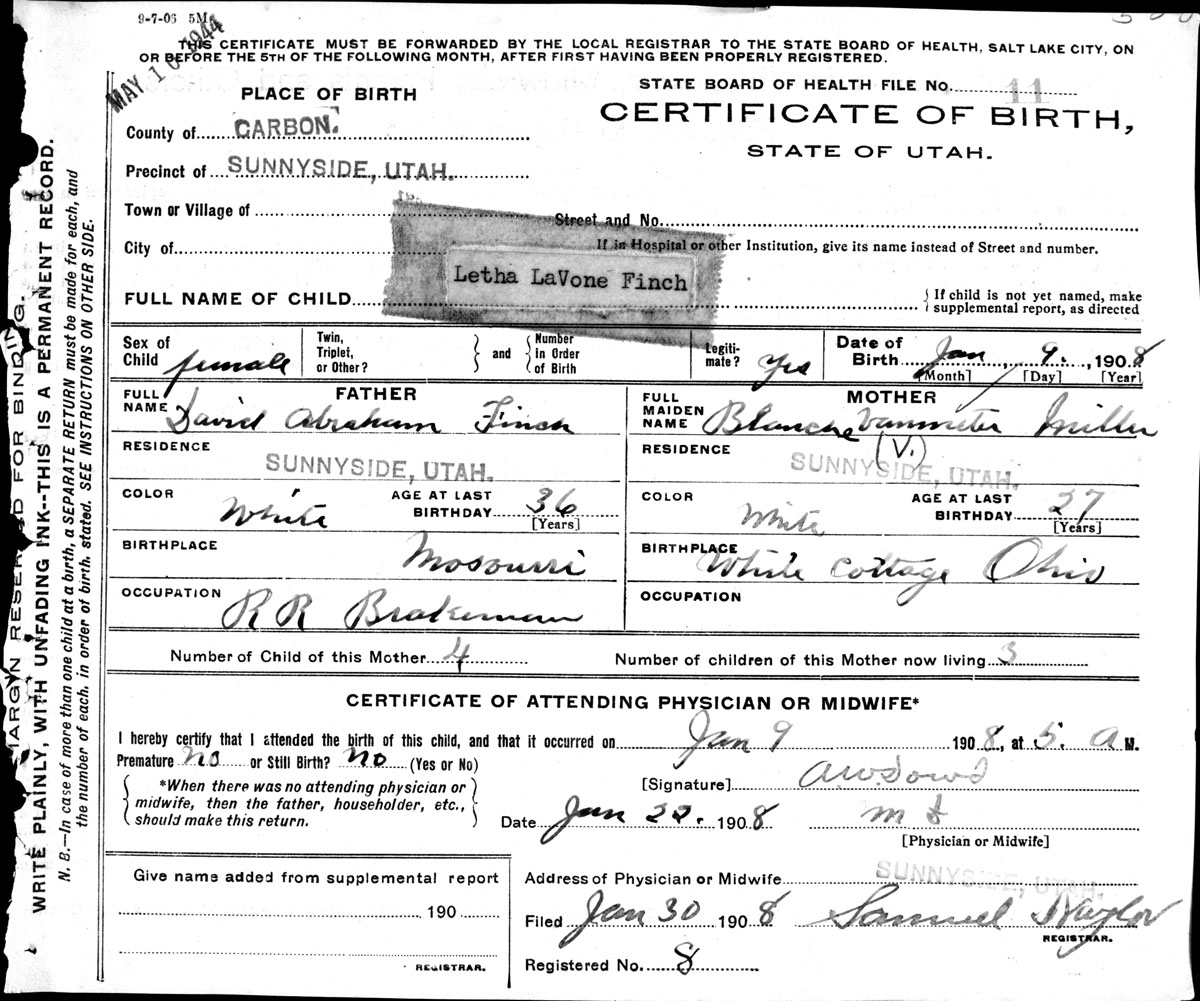 9-7-06 5M
MAY 10 1944
THIS CERTIFICATE MUST BE FORWARDED BY THE LOCAL REGISTRAR TO THE STATE BOARD OF HEALTH, SALT LAKE CITY, ON
OR BEFORE THE 5TH OF THE FOLLOWING MONTH, AFTER FIRST HAVING BEEN PROPERLY REGISTERED.
STATE BOARD OF HEALTH FILE No. 11
PLACE OF BIRTH
CERTIFICATE OF BIRTH,
STATE OF UTAH.
County of CARBON.
Precinct of SUNNYSIDE, UTAH.
Town or Village of
Street and No.
City of
If in Hospital or other Institution, give its name instead of Street and number.
Letha LaVone Finch
FULL NAME OF CHILD
{ If child is not yet named, make
supplemental report, as directed
Sex of Child female
Twin, Triplet, or Other? } and { Number in Order of Birth
Legiti-mate? Yes
Date of Birth Jan 9., 1908
[Month] [Day] [Year]
FATHER
FULL NAME David Abraham Finch
RESIDENCE
SUNNYSIDE, UTAH.
COLOR White AGE AT LAST BIRTHDAY 36
[Years]
BIRTHPLACE Mosourri
OCCUPATION R R Brakeman
MOTHER
FULL MAIDEN NAME Blanche Vanmeter Miller
(V.)
RESIDENCE
SUNNYSIDE, UTAH.
COLOR White AGE AT LAST BIRTHDAY 27
[Years]
BIRTHPLACE White Cottage Ohio
OCCUPATION
Number of Child of this Mother 4 Number of children of this Mother now living 3
CERTIFICATE OF ATTENDING PHYSICIAN OR MIDWIFE*
I hereby certify that I attended the birth of this child, and that it occurred on Jan 9 1908, at 5. A M.
Premature no or Still Birth? no (Yes or No)
{ *When there was no attending physician or
midwife, then the father, householder, etc.,
should make this return. }
[Signature] A.W. Dowd
Date Jan 22. 1908 M D
[Physician or Midwife]
Give name added from supplemental report
190
REGISTRAR.
Address of Physician or Midwife SUNNYSIDE, UTAH.
Filed Jan 30 1908 Samuel Naylor
REGISTRAR.
Registered No. 8
MARGIN RESERVED FOR BINDING.
WRITE PLAINLY, WITH UNFADING INK--THIS IS A PERMANENT RECORD.
N. B.—In case of more than one child at a birth, a SEPARATE RETURN must be made for each, and
the number of each, in order of birth, stated. SEE INSTRUCTIONS ON OTHER SIDE.